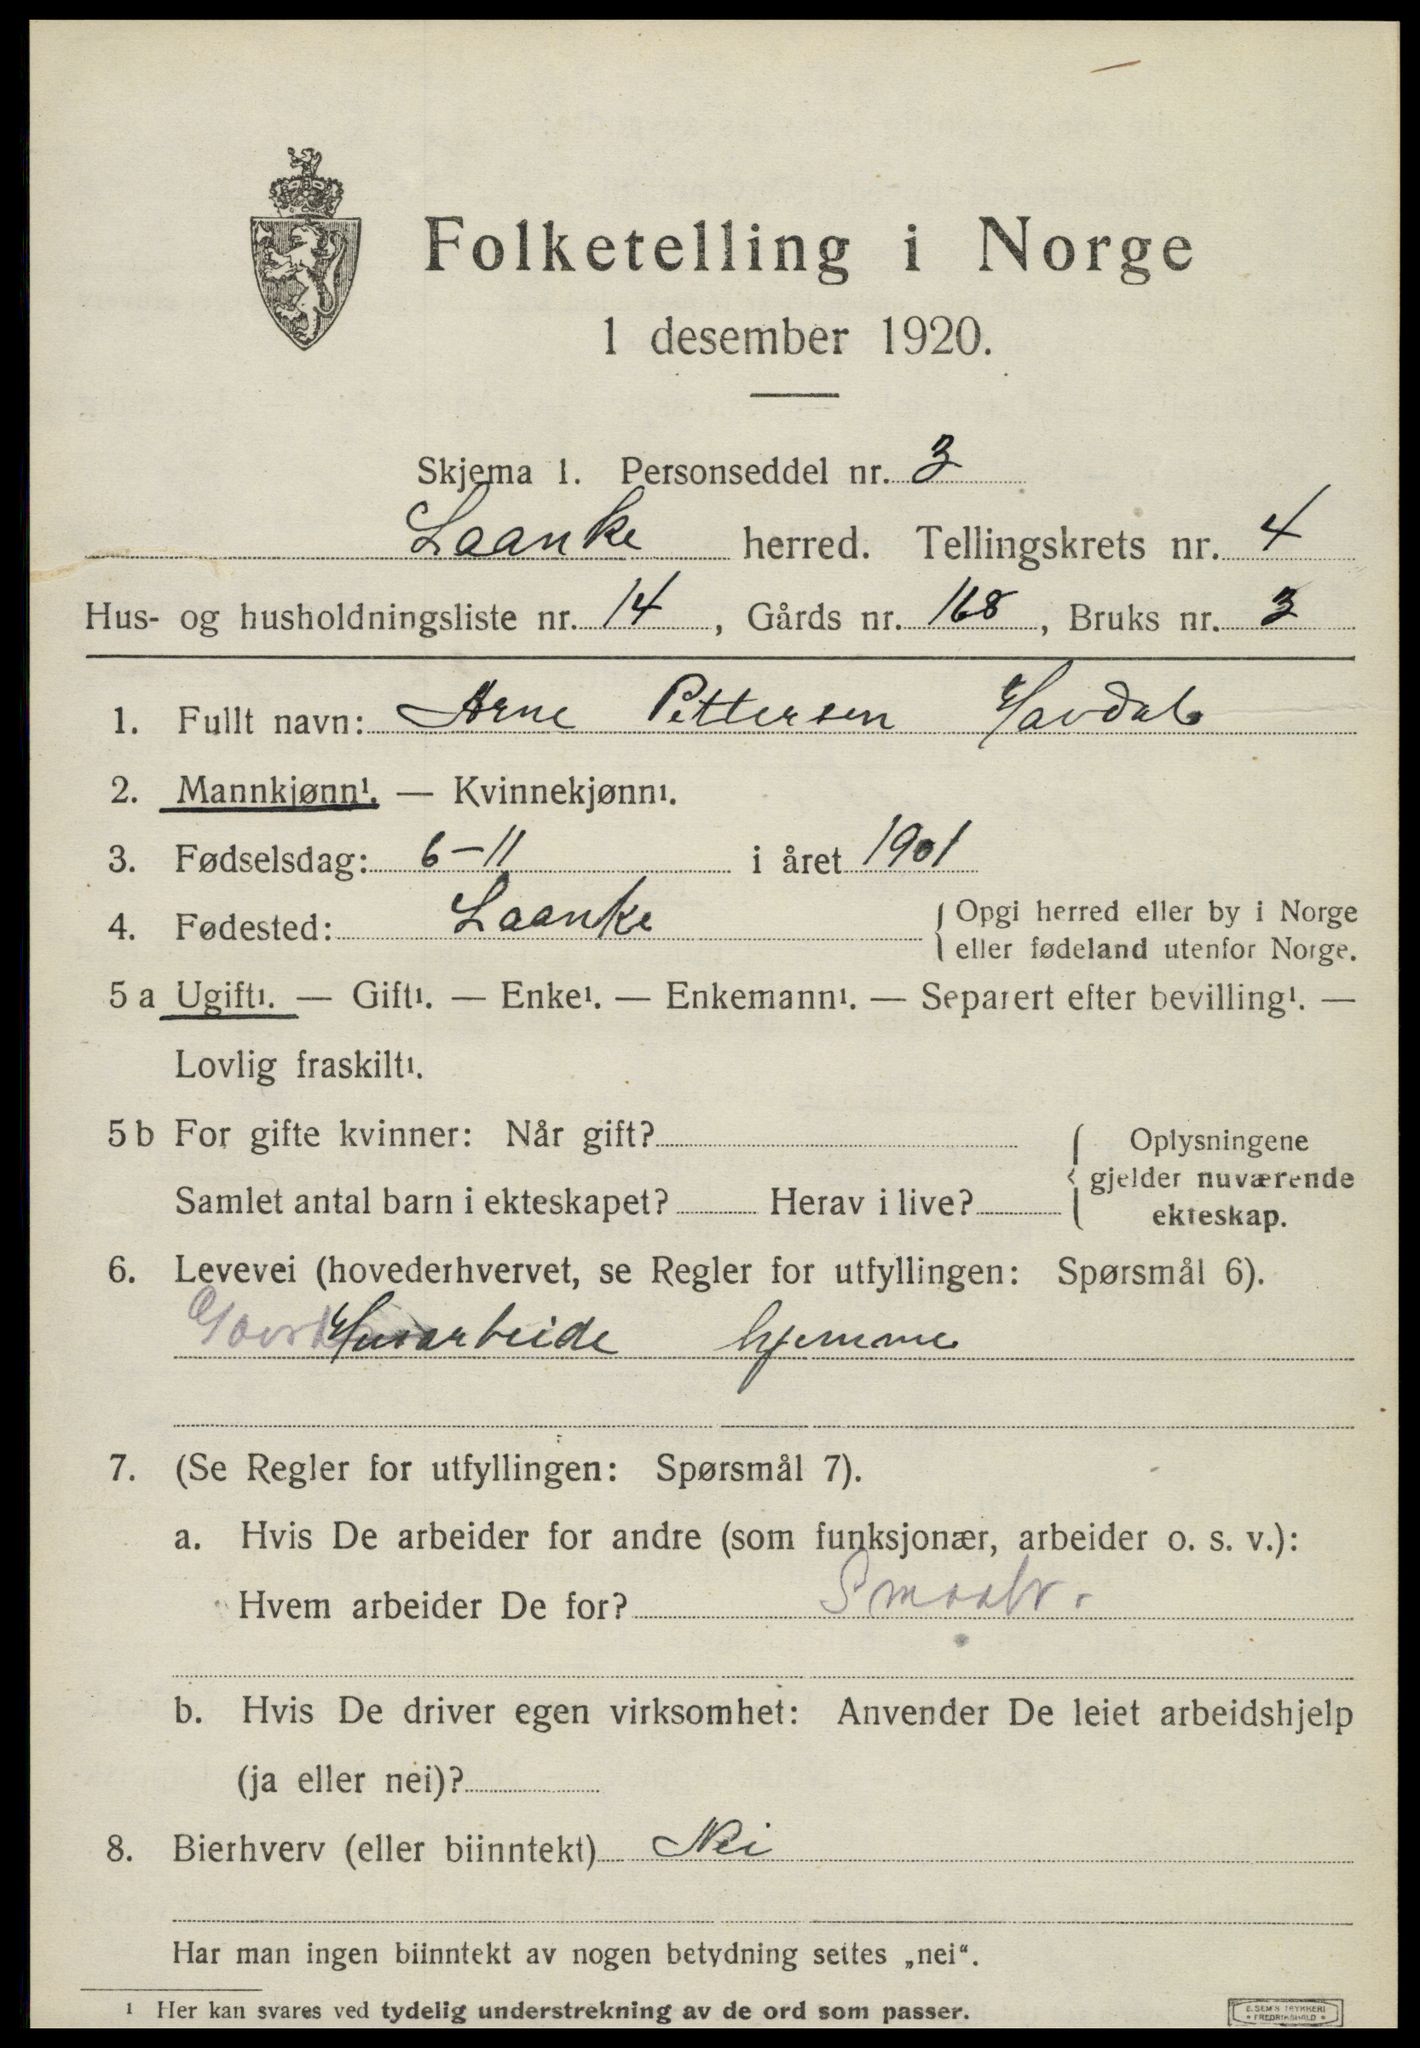 Folketelling i Norge
1 desember 1920.
Skjema 1. Personseddel nr. 3
Laanke herred. Tellingskrets nr. 4
Hus- og husholdningsliste nr. 14, Gårds nr. 168, Bruks nr. 3
1. Fullt navn: Arne Pettersen Havdal
2. Mannkjønn¹. — Kvinnekjønn¹.
3. Fødselsdag: 6-11 i året 1901
4. Fødested: Laanke { Opgi herred eller by i Norge
eller fødeland utenfor Norge.
5 a Ugift¹. — Gift¹. — Enke¹. — Enkemann¹. — Separert efter bevilling¹. —
Lovlig fraskilt¹.
5 b For gifte kvinner: Når gift?
Samlet antal barn i ekteskapet? Herav i live?
{ Oplysningene
gjelder nuværende
ekteskap.
6. Levevei (hovederhvervet, se Regler for utfyllingen: Spørsmål 6).
Husarbeide hjemme
7. (Se Regler for utfyllingen: Spørsmål 7).
a. Hvis De arbeider for andre (som funksjonær, arbeider o. s. v.):
Hvem arbeider De for? Smaabr.
b. Hvis De driver egen virksomhet: Anvender De leiet arbeidshjelp
(ja eller nei)?
8. Bierhverv (eller biinntekt) Nei
Har man ingen biinntekt av nogen betydning settes „nei“.
¹ Her kan svares ved tydelig understrekning av de ord som passer.
E. SEM'S TRYKKERI
* FREDRIKSHALD *